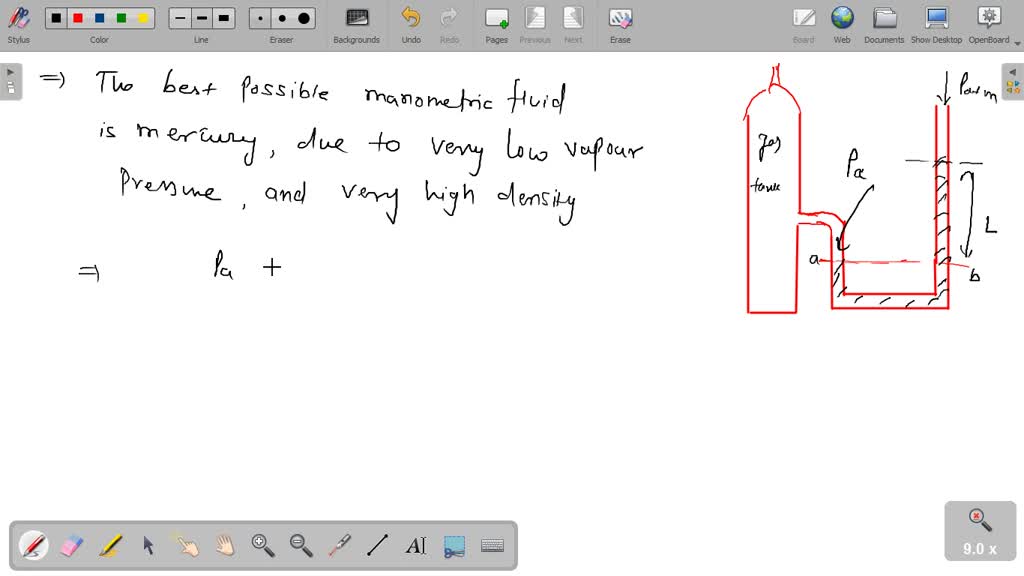 Stylus Color Line Eraser Backgrounds Undo Redo Pages Previous Next Erase Board Web Documents Show Desktop OpenBoard
=) The best possible manometric fluid
is mercury, due to very low vapour
Pressure, and very high density
=) Pa +
Patm
gas
tank
Pa
L
a
b
9.0 x